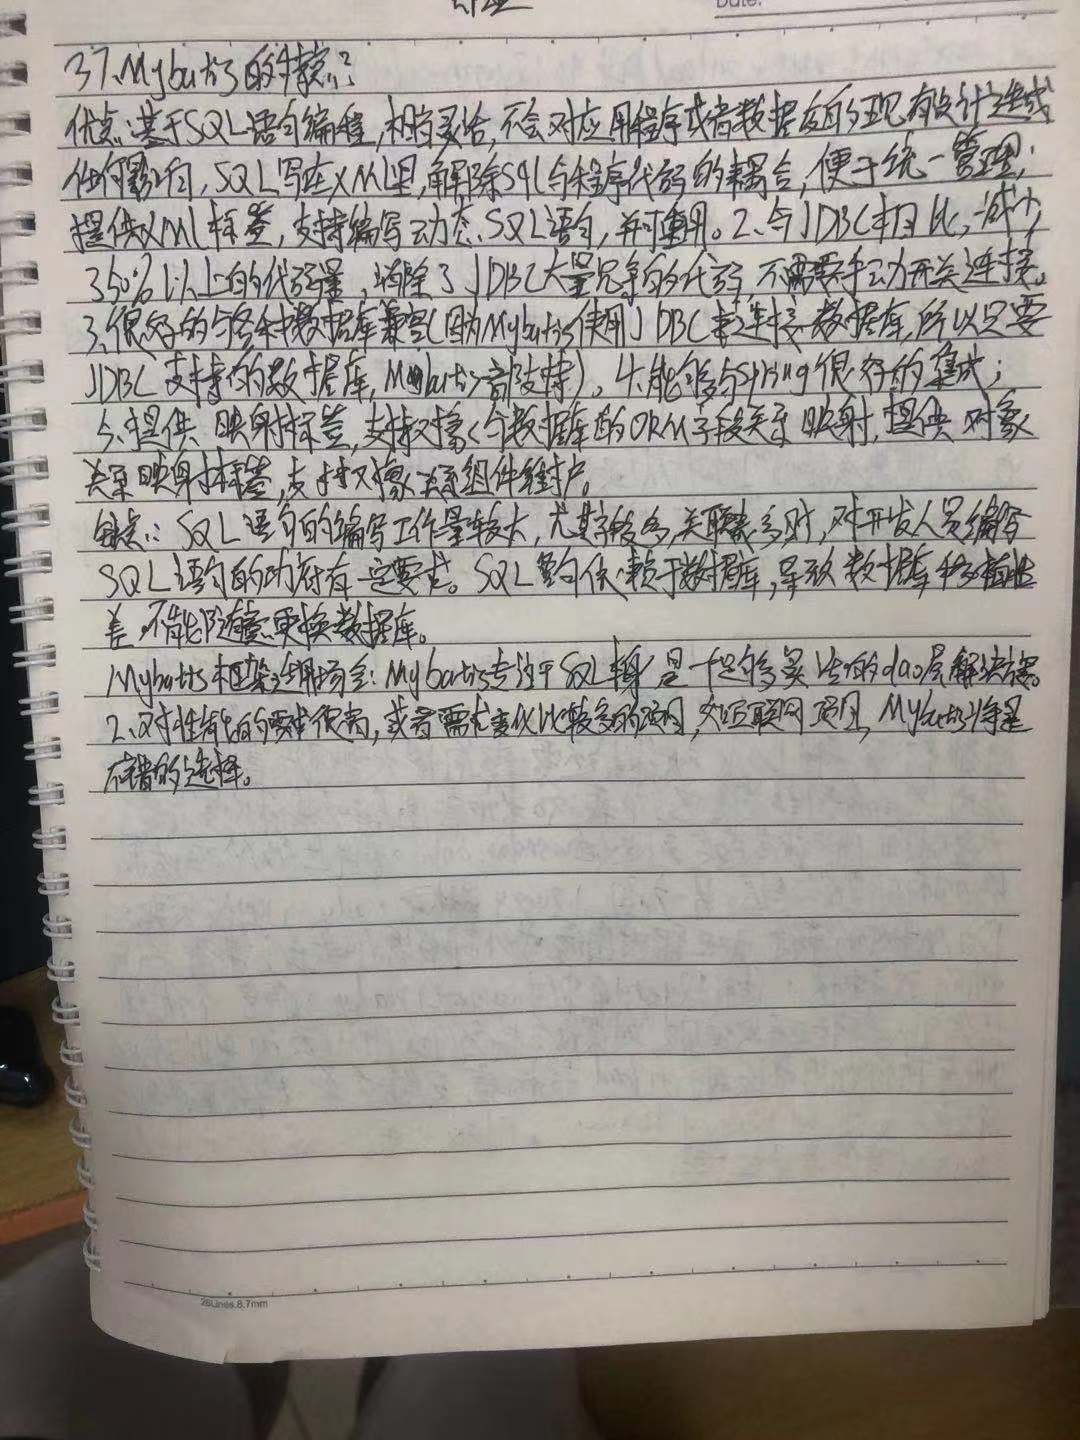 Date:
37、Mybatis的特点:?
优点:基于SQL语句编程,相当灵活,不会对应用程序或者数据库的现有设计造成
任何影响,SQL写在XML里,解除sql与程序代码的耦合,便于统一管理;
提供XML标签,支持编写动态SQL语句,并可重用。2、与JDBC相比,减少
350%以上的代码量,消除了JDBC大量冗余的代码,不需要手动开关连接。
3、很好的与各种数据库兼容(因为Mybatis使用JDBC来连接数据库,所以只要
JDBC支持的数据库,Mybatis都支持)。4、能够与Spring很好的集成;
5、提供映射标签,支持对象与数据库的ORM字段关系映射,提供对象
关系映射标签,支持对象关系组件维护。
缺点:SQL语句的编写工作量较大,尤其字段多,关联表多时,对开发人员编写
SQL语句的功底有一定要求。SQL语句依赖于数据库,导致数据库移植性
差,不能随意更换数据库。
Mybatis框架适用场合:Mybatis专注于SQL本身,是一个足够灵活的dao层解决方案。
2、对性能的要求很高,或者需求变化比较多的项目,如互联网项目,Mybatis将是
不错的选择。
28Lines.8.7mm